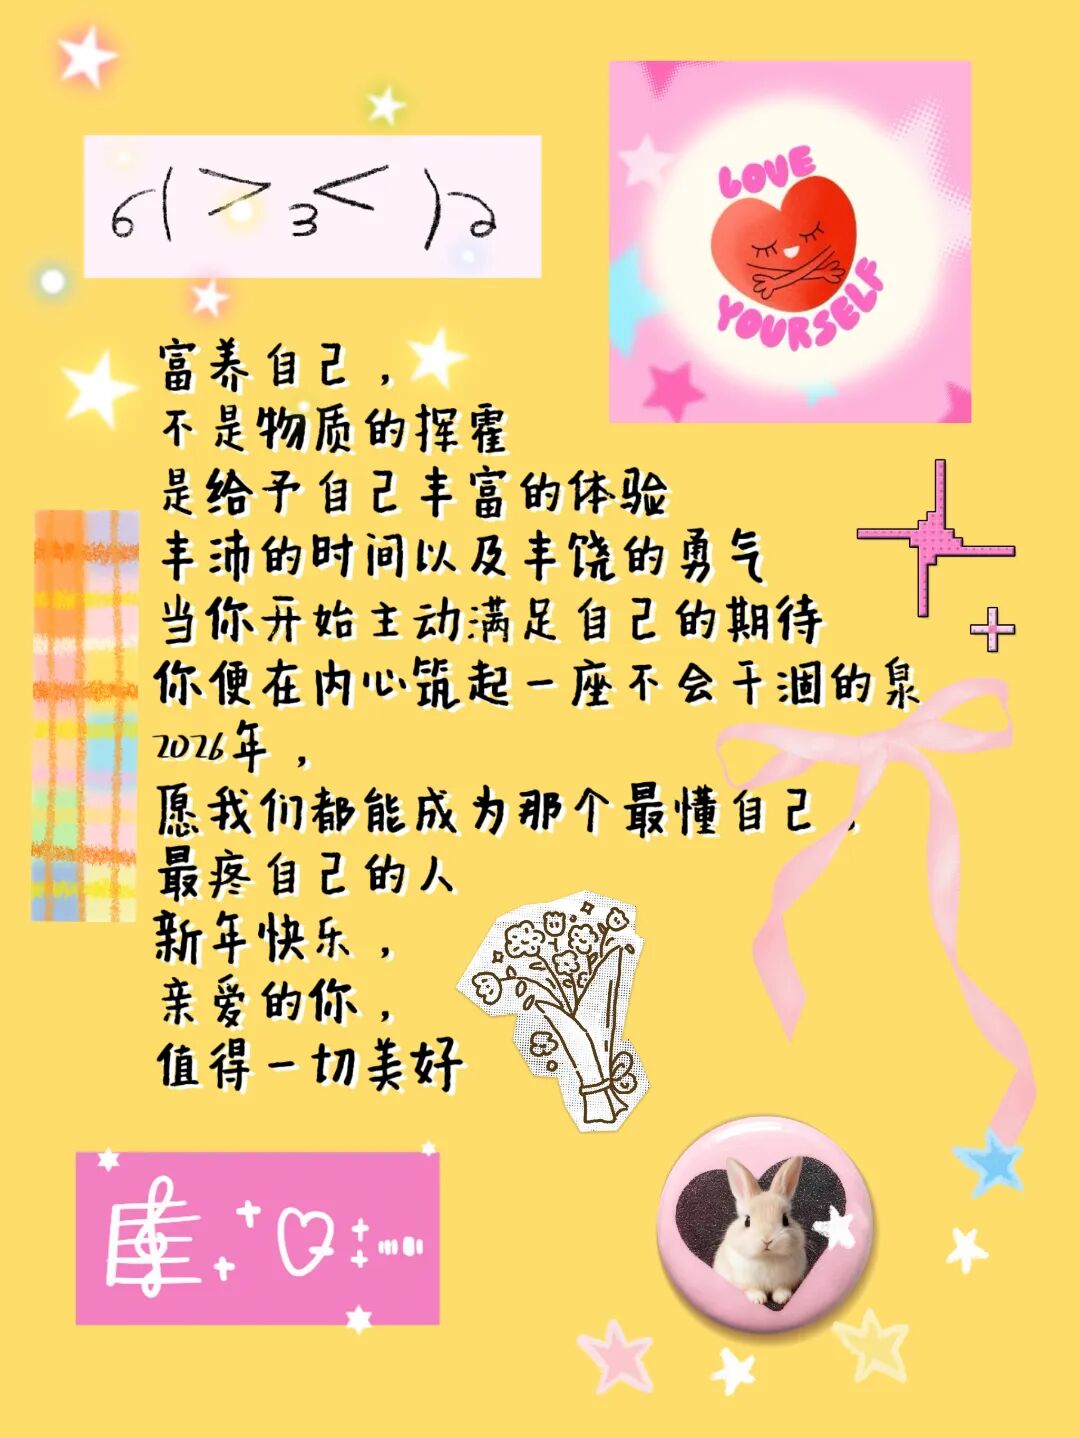 6( > 3 < )2
LOVE
YOURSELF
富养自己，
不是物质的挥霍
是给予自己丰富的体验
丰沛的时间以及丰饶的勇气
当你开始主动满足自己的期待
你便在内心筑起一座不会干涸的泉
2026年，
愿我们都能成为那个最懂自己，
最疼自己的人
新年快乐，
亲爱的你，
值得一切美好